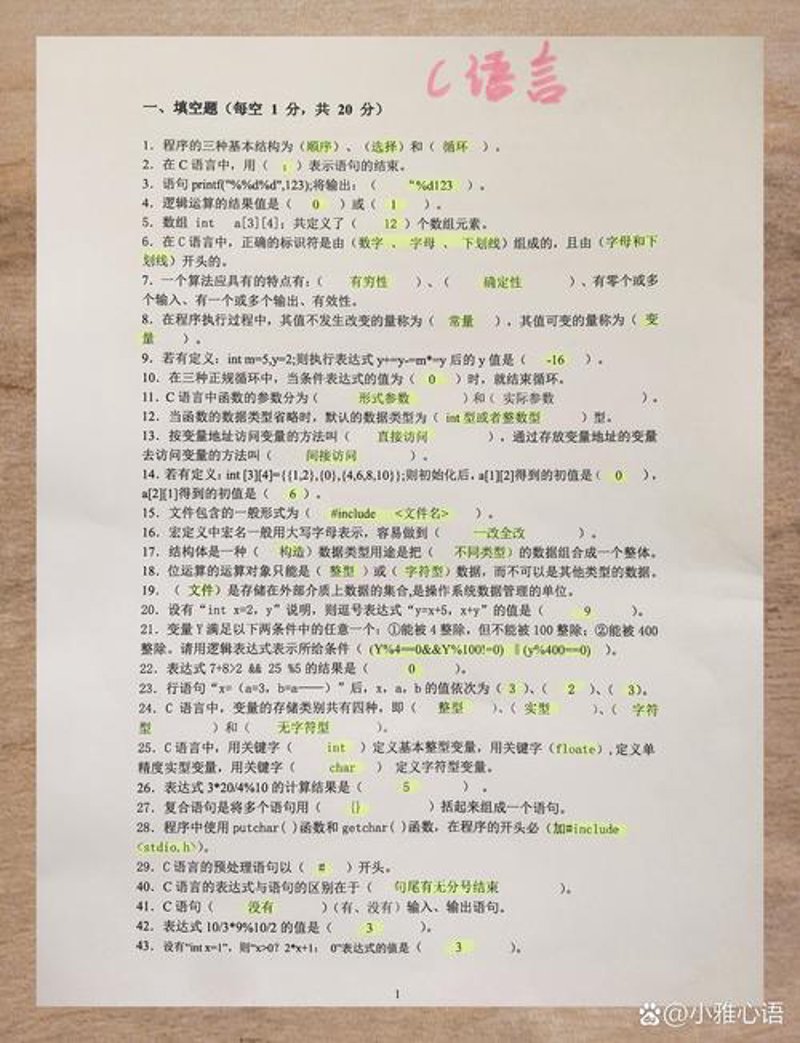 C 语言
一、填空题（每空 1 分，共 20 分）
1．程序的三种基本结构为（顺序）、（选择）和（ 循环 ）。
2．在 C 语言中，用（ ； ）表示语句的结束。
3．语句 printf("%%d%d",123);将输出：（ “%d123 ）。
4．逻辑运算的结果值是（ 0 ）或（ 1 ）。
5．数组 int a[3][4]；共定义了（ 12 ）个数组元素。
6．在 C 语言中，正确的标识符是由（数字 、 字母 、 下划线）组成的，且由（字母和下
划线）开头的。
7．一个算法应具有的特点有：（ 有穷性 ）、（ 确定性 ）、有零个或多
个输入、有一个或多个输出、有效性。
8．在程序执行过程中，其值不发生改变的量称为（ 常量 ），其值可变的量称为（ 变
量 ）。
9．若有定义：int m=5,y=2;则执行表达式 y+=y-=m*=y 后的 y 值是（ -16 ）。
10．在三种正规循环中，当条件表达式的值为（ 0 ）时，就结束循环。
11．C 语言中函数的参数分为（ 形式参数 ）和（ 实际参数 ）。
12．当函数的数据类型省略时，默认的数据类型为（ int 型或者整数型 ）型。
13．按变量地址访问变量的方法叫（ 直接访问 ），通过存放变量地址的变量
去访问变量的方法叫（ 间接访问 ）。
14．若有定义：int [3][4]={{1,2},{0},{4,6,8,10}};则初始化后，a[1][2]得到的初值是（ 0 ），
a[2][1]得到的初值是（ 6 ）。
15．文件包含的一般形式为（ #include <文件名> ）。
16．宏定义中宏名一般用大写字母表示，容易做到（ 一改全改 ）。
17．结构体是一种（ 构造）数据类型用途是把（ 不同类型）的数据组合成一个整体。
18．位运算的运算对象只能是（ 整型 ）或（ 字符型）数据，而不可以是其他类型的数据。
19．（ 文件）是存储在外部介质上数据的集合,是操作系统数据管理的单位。
20．设有“int x=2，y”说明，则逗号表达式“y=x+5，x+y”的值是（ 9 ）。
21．变量 Y 满足以下两条件中的任意一个：①能被 4 整除，但不能被 100 整除；②能被 400
整除。请用逻辑表达式表示所给条件（ (Y%4==0&&Y%100!=0) ||(y%400==0) ）。
22．表达式 7+8>2 && 25 %5 的结果是（ 0 ）。
23．行语句“x=（a=3，b=a——）”后，x，a，b 的值依次为（ 3 ）、（ 2 ）、（ 3）。
24．C 语言中，变量的存储类别共有四种，即（ 整型 ）、（ 实型 ）、（ 字符
型 ）和（ 无字符型 ）。
25．C 语言中，用关键字（ int ）定义基本整型变量，用关键字（floate）,定义单
精度实型变量，用关键字（ char ） 定义字符型变量。
26．表达式 3*20/4%10 的计算结果是（ 5 ） 。
27．复合语句是将多个语句用（ {} ）括起来组成一个语句。
28．程序中使用 putchar( )函数和 getchar( )函数，在程序的开头必（加#include
<stdio.h>）。
29．C 语言的预处理语句以（ # ）开头。
40．C 语言的表达式与语句的区别在于（ 句尾有无分号结束 ）。
41．C 语句（ 没有 ）（有、没有）输入、输出语句。
42．表达式 10/3*9%10/2 的值是（ 3 ）。
43．设有“int x=1”，则“x>0？2*x+1： 0”表达式的值是（ 3 ）。
1
@小雅心语